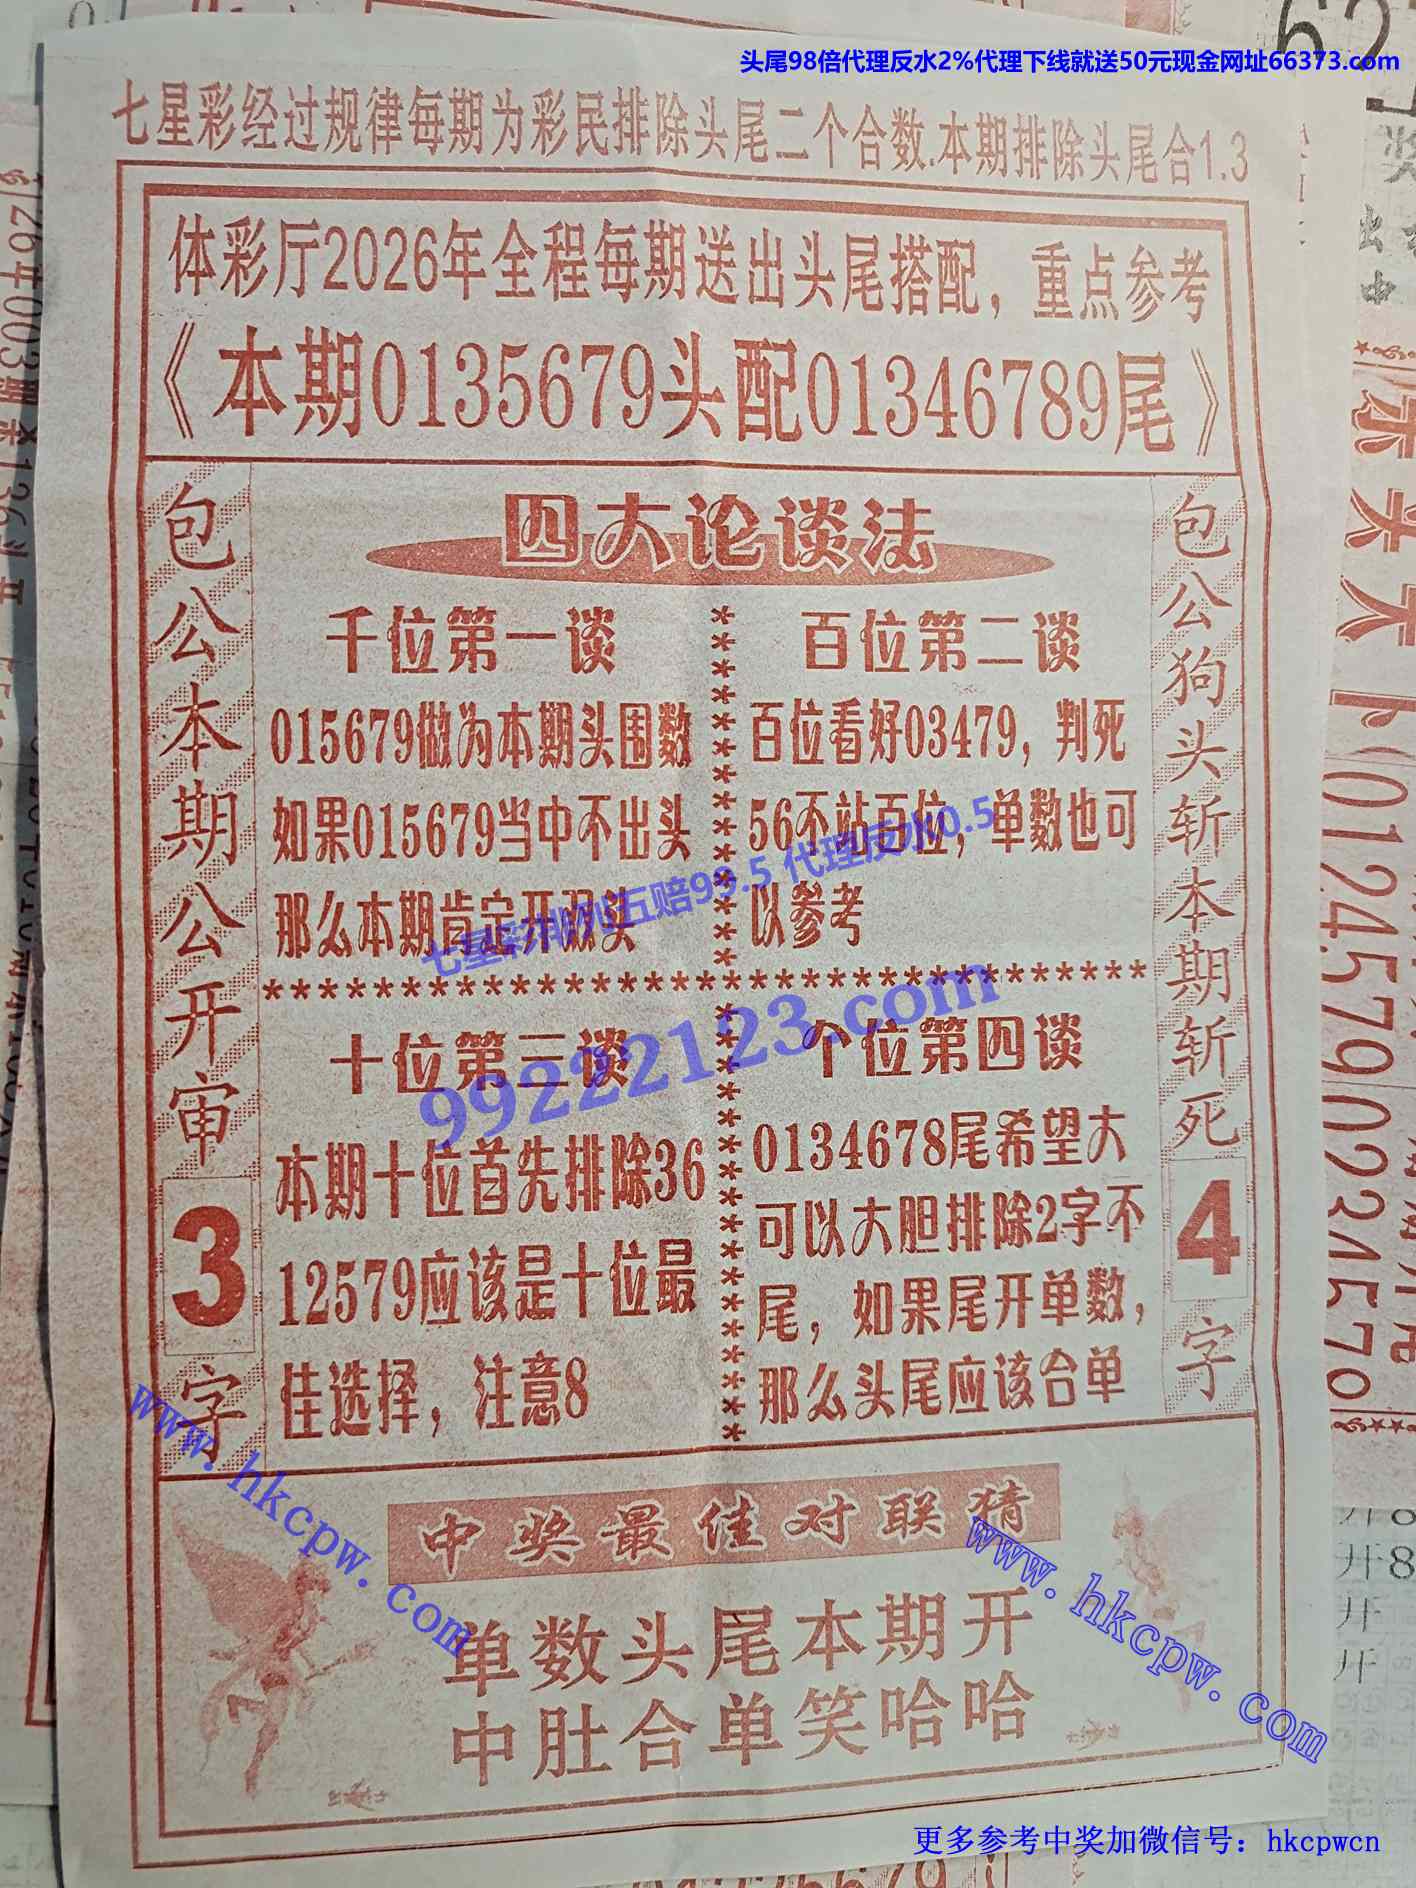 头尾98倍代理反水2%代理下线就送50元现金网址66373.com
七星彩经过规律每期为彩民排除头尾二个合数.本期排除头尾合1.3
体彩厅2026年全程每期送出头尾搭配，重点参考
《本期0135679头配01346789尾》
包公本期公开审3字
四大论谈法
千位第一谈
015679做为本期头围数
如果015679当中不出头
那么本期肯定开双头
百位第二谈
百位看好03479，判死
56不站百位，单数也可
以参考
七星彩排列五赔99.5 代理反水0.5
99222123.com
十位第三谈
本期十位首先排除36
12579应该是十位最
佳选择，注意8
个位第四谈
0134678尾希望大
可以大胆排除2字不
尾，如果尾开单数，
那么头尾应该合单
包公狗头斩本期斩死4字
中奖最佳对联猜
单数头尾本期开
中肚合单笑哈哈
www.hkcpw.com
www.hkcpw.com
更多参考中奖加微信号：hkcpwcn